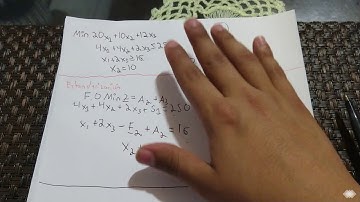 Min 20x₁+10x₂+12x₃
4x₁+4x₂+2x₃≤25
x₁+2x₃≥16
x₂=10
Estandarización
F.O Min Z = A₂ + A₃
4x₁+4x₂+2x₃+S₁=250
x₁+2x₃-E₂+A₂=16
x₂